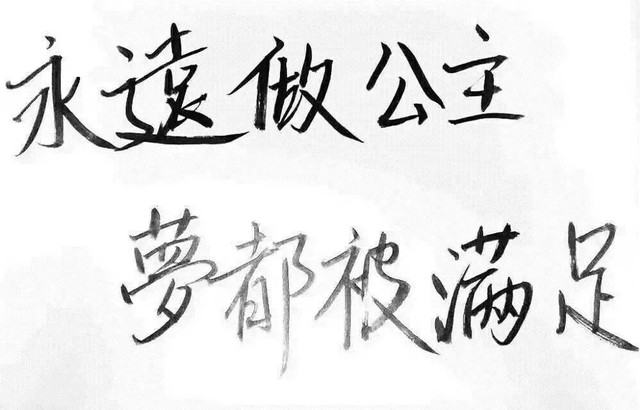 永遠做公主
夢都被满足